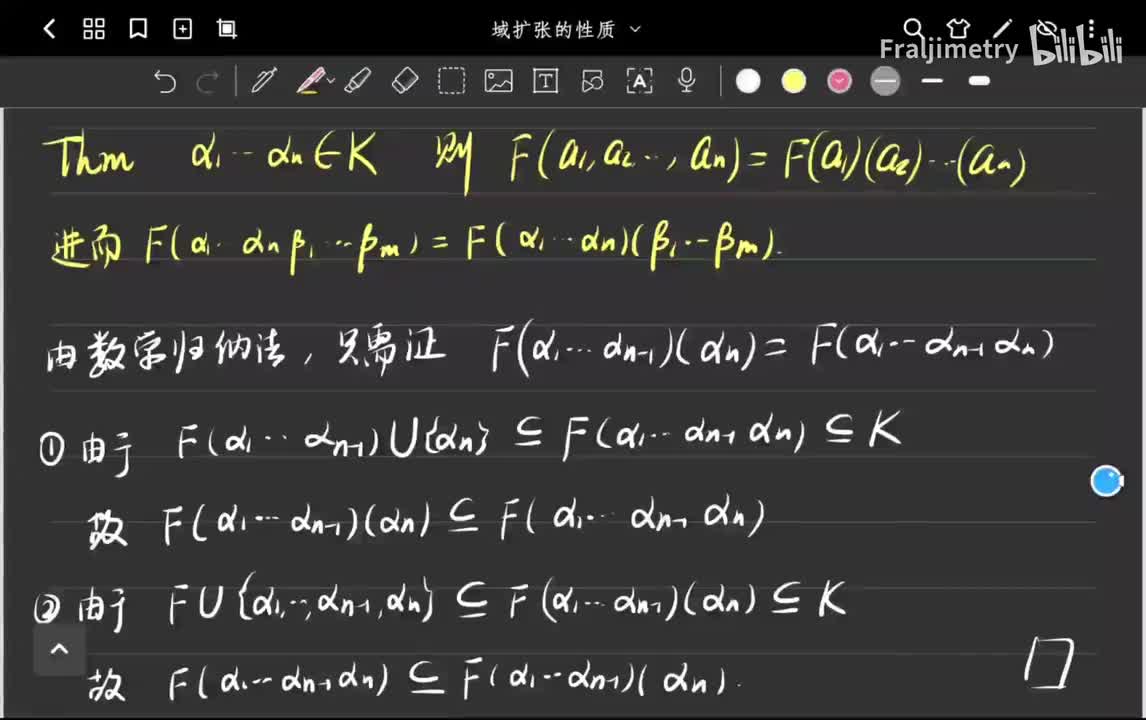 域扩张的性质
Fraljimetry bilibili
Thm α₁ ⋯ αₙ ∈ K 则 F(a₁, a₂ ⋯, aₙ) = F(a₁)(a₂) ⋯ (aₙ)
进而 F(α₁ ⋯ αₙ β₁ ⋯ βₘ) = F(α₁ ⋯ αₙ)(β₁ ⋯ βₘ).
由数学归纳法，只需证 F(α₁ ⋯ αₙ₋₁)(αₙ) = F(α₁ ⋯ αₙ₋₁ αₙ)
① 由于 F(α₁ ⋯ αₙ₋₁) ∪ {αₙ} ⊆ F(α₁ ⋯ αₙ₋₁ αₙ) ⊆ K
故 F(α₁ ⋯ αₙ₋₁)(αₙ) ⊆ F(α₁ ⋯ αₙ₋₁ αₙ)
② 由于 F ∪ {α₁, ⋯, αₙ₋₁, αₙ} ⊆ F(α₁ ⋯ αₙ₋₁)(αₙ) ⊆ K
故 F(α₁ ⋯ αₙ₋₁ αₙ) ⊆ F(α₁ ⋯ αₙ₋₁)(αₙ). □